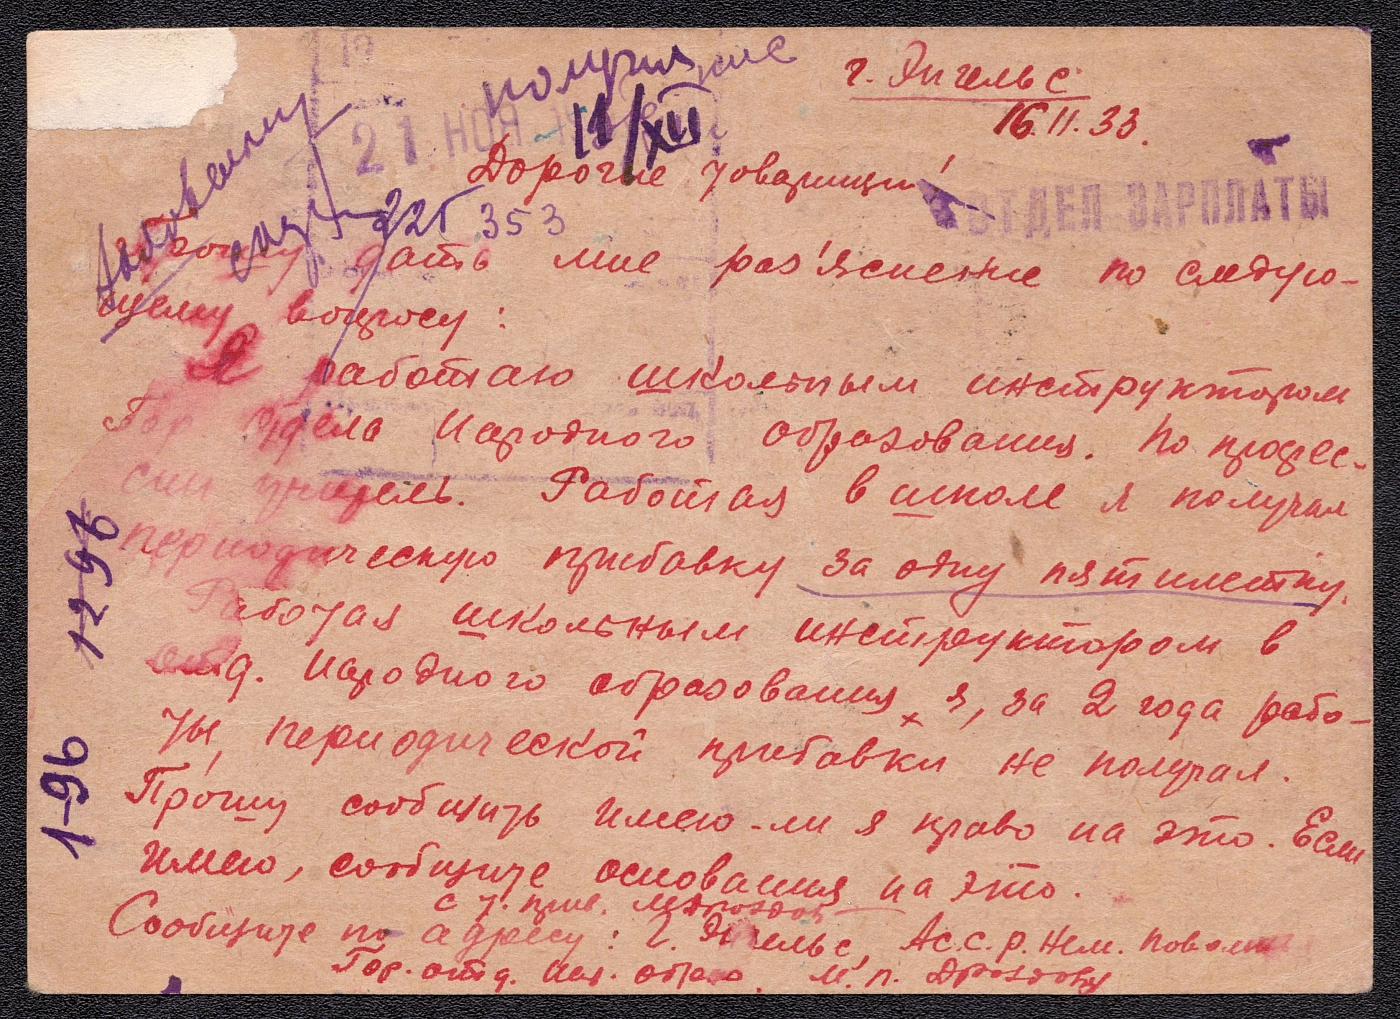 г. Энгельс
16.11.33.
получил
11/XII
21 НОЯ
Дорогие товарищи!
ОТДЕЛ ЗАРПЛАТЫ
353
Прошу дать мне раз'яснение по следую-
щему вопросу:
Я работаю школьным инструктором
Гор отдела Народного образования. По профес-
сии учитель. Работая в школе я получал
периодическую прибавку за одну пятилетку.
Работая школьным инструктором в
отд. Народного образования я, за 2 года рабо-
ты, периодической прибавки не получал.
Прошу сообщить имею-ли я право на это. Если
имею, сообщите основания на это.
с т. прив. МДроздов
Сообщите по адресу: г. Энгельс, Ас.с.р. Нем. Поволж
Гор. отд. нар. образ. М.П. Дроздову
12-96
1-96